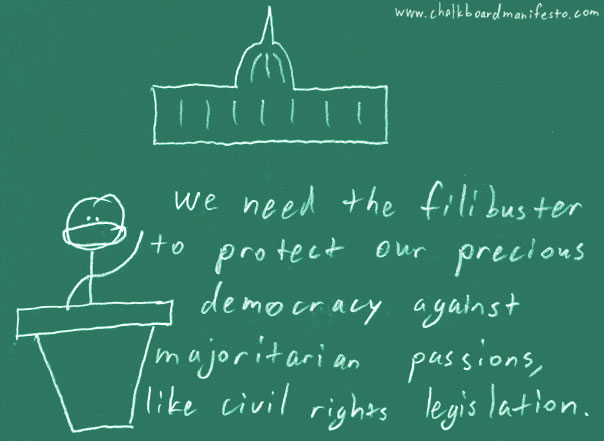 www.chalkboardmanifesto.com
We need the filibuster
to protect our precious
democracy against
majoritarian passions,
like civil rights legislation.